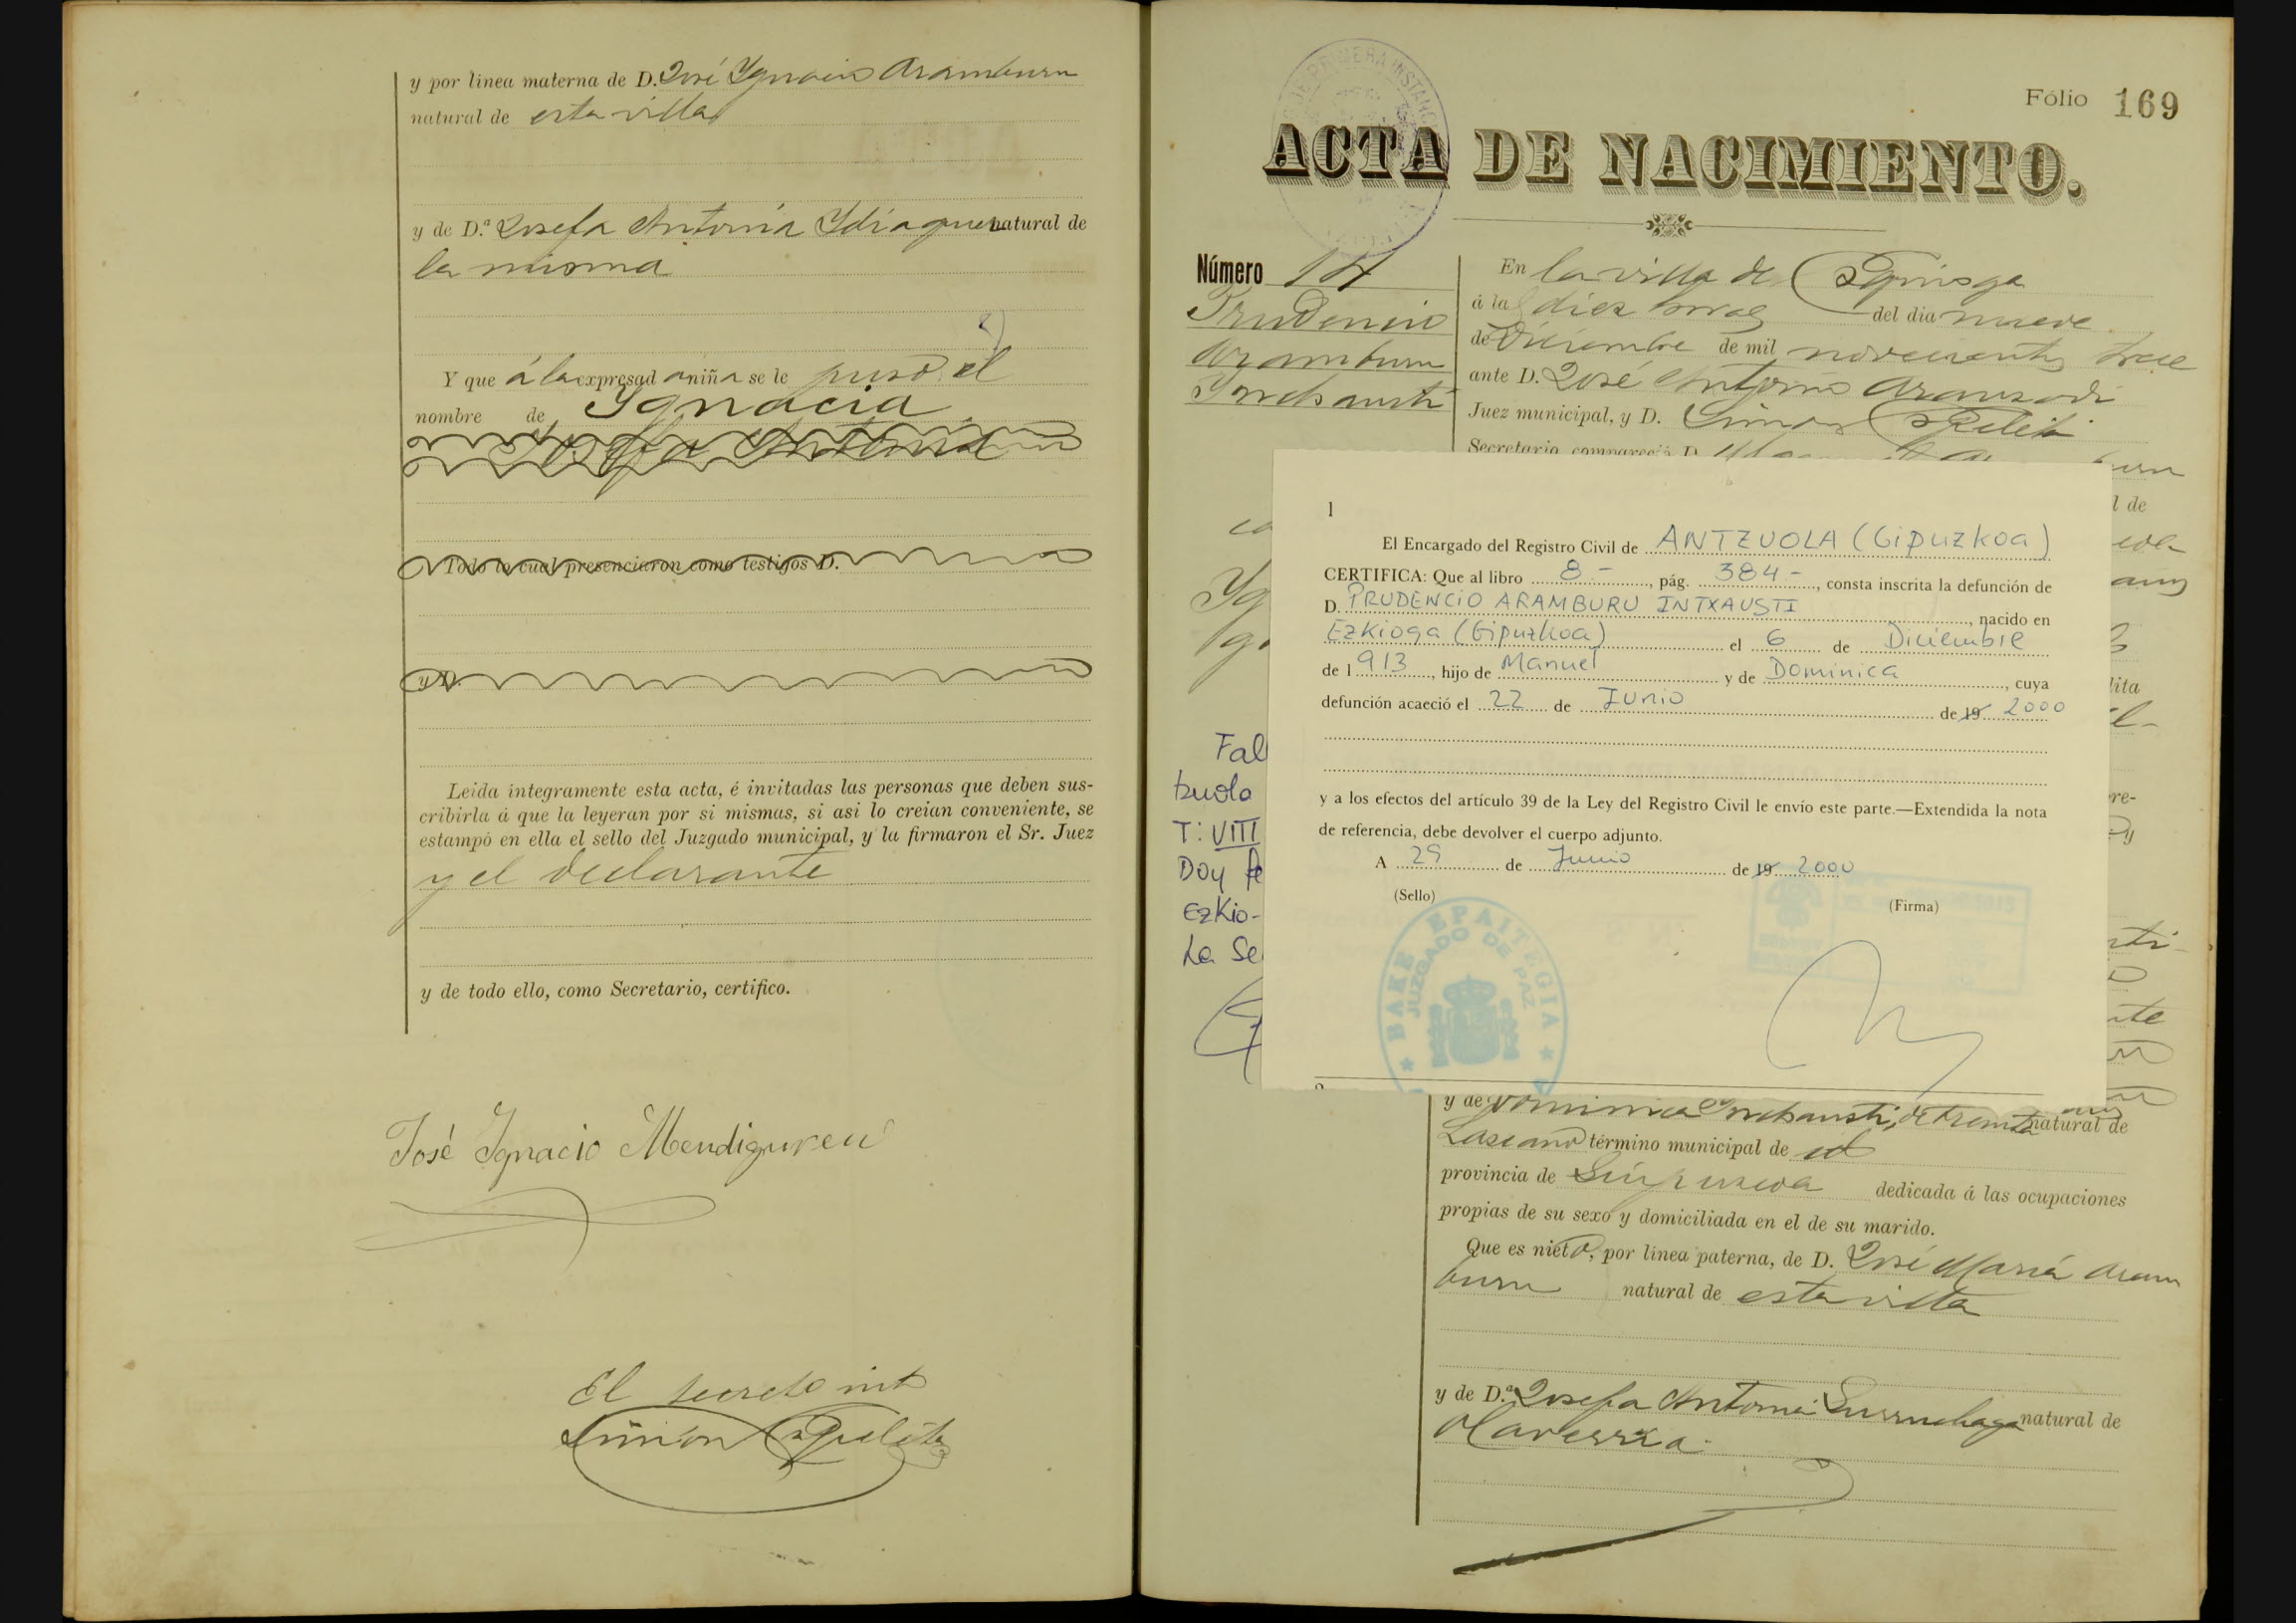 y por linea materna de D. José Ygnacio Aramburu
natural de esta villa
y de D.ª Josefa Antonia Ydiaquez natural de
la misma
Y que á la expresada niña se le puso el
nombre de Ygnacia
Josefa Antonia
Todo lo cual presenciaron como testigos D.
y D.
Leida integramente esta acta, é invitadas las personas que deben sus-
cribirla á que la leyeran por si mismas, si asi lo creian conveniente, se
estampó en ella el sello del Juzgado municipal, y la firmaron el Sr. Juez
y el declarante
y de todo ello, como Secretario, certifico.
José Ygnacio Mendiguren
El secreto int
Simón
Fólio 169
ACTA DE NACIMIENTO.
Número 14
Prudencio
Aramburu
Ynchausti
En la villa de Ezquioga
á las diez horas del dia nueve
de Diciembre de mil novecientos trece
ante D. José Antonio Aranzadi
Juez municipal, y D. Simón
Secretario, compareció D.
l de
Fal
tzuola
T: VIII
Doy fe
Ezkio-
La Se
1
El Encargado del Registro Civil de ANTZUOLA (Gipuzkoa)
CERTIFICA: Que al libro 8-, pág. 384-, consta inscrita la defunción de
D. PRUDENCIO ARAMBURU INTXAUSTI, nacido en
Ezkioga (Gipuzkoa) el 6 de Diciembre
de 1913, hijo de Manuel y de Dominica, cuya
defunción acaeció el 22 de Junio de 19 2000
y a los efectos del artículo 39 de la Ley del Registro Civil le envío este parte.—Extendida la nota
de referencia, debe devolver el cuerpo adjunto.
A 29 de Junio de 19 2000
(Sello)
(Firma)
BAKE EPAITEGIA
JUZGADO DE PAZ
y de Dominica Ynchausti, de treinta años natural de
Lazcano término municipal de id
provincia de Guipuzcoa dedicada á las ocupaciones
propias de su sexo y domiciliada en el de su marido.
Que es nieto, por linea paterna, de D. José María Aram
buru natural de esta villa
y de D.ª Josefa Antonia Gurruchaga natural de
Olaverria